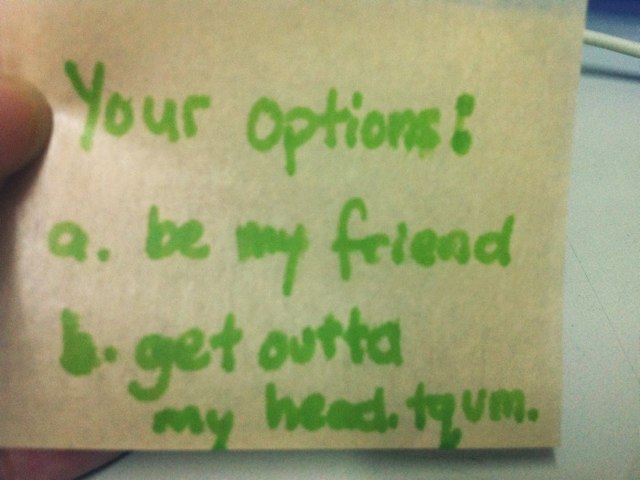 Your options:
a. be my friend
b. get outta
my head. tqvm.